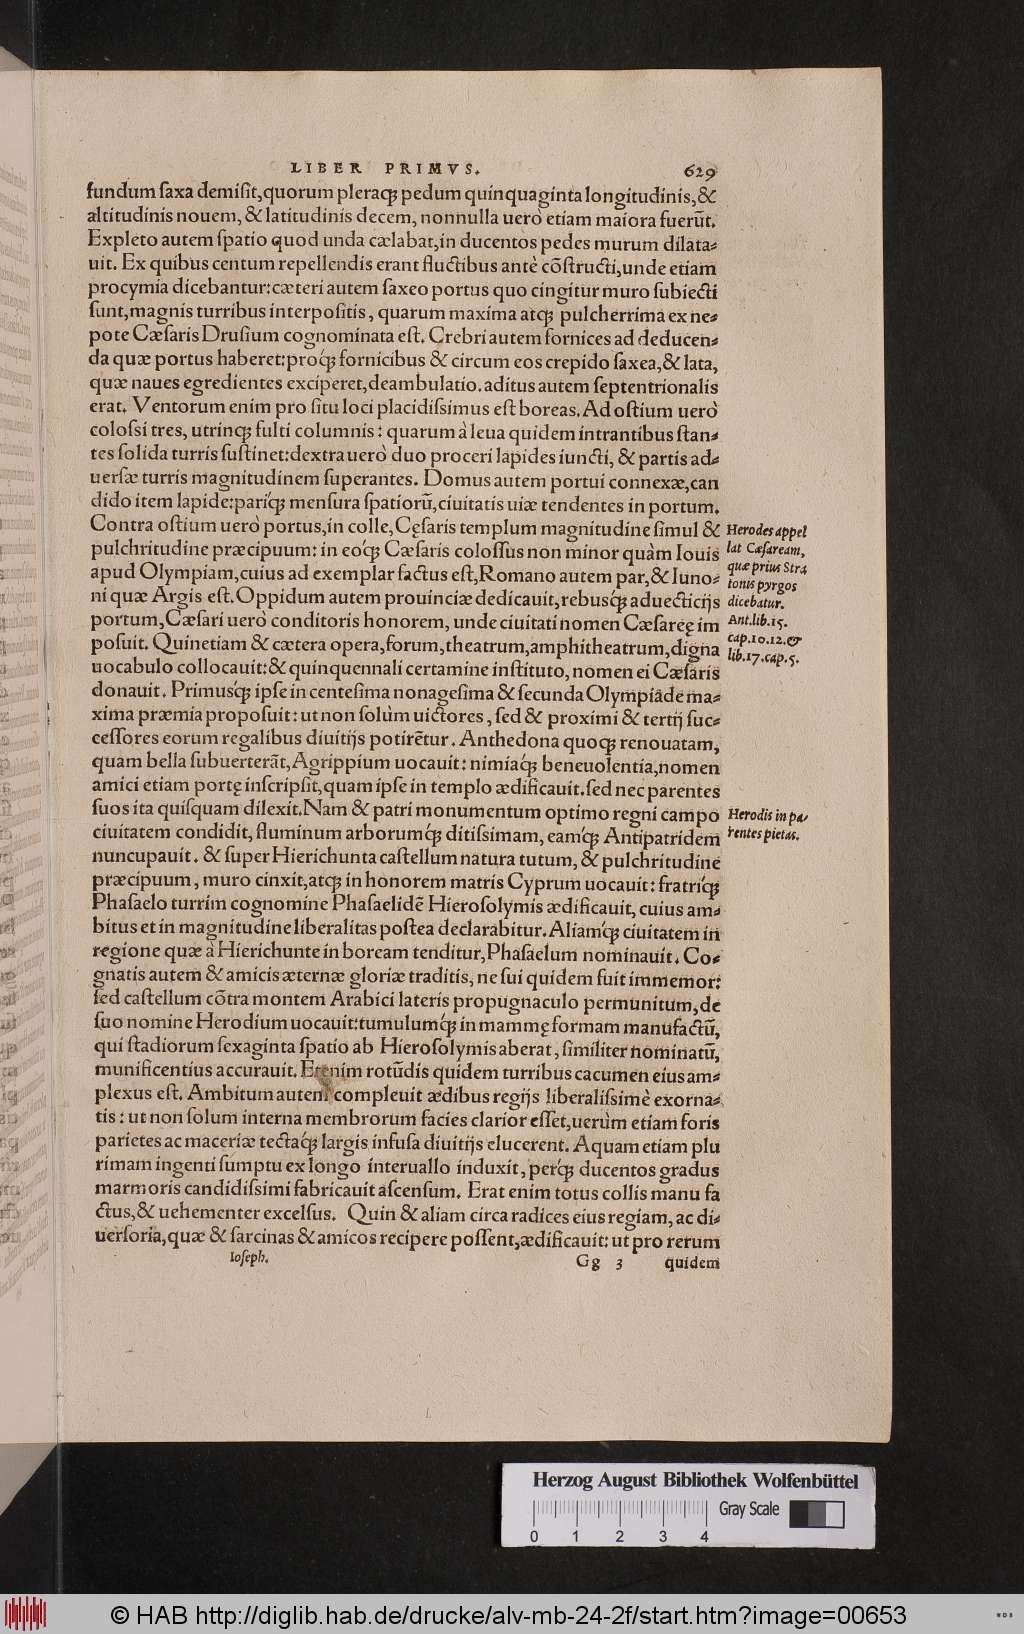 LIBER PRIMVS. 629
fundum ſaxa demiſit, quorum pleraq; pedum quinquaginta longitudinis, &
altitudinis nouem, & latitudinis decem, nonnulla uerò etiam maiora fuerũt.
Expleto autem ſpatio quod unda cælabat, in ducentos pedes murum dilata-
uit. Ex quibus centum repellendis erant fluctibus antè cõſtructi, unde etiam
procymia dicebantur: cæteri autem ſaxeo portus quo cingitur muro ſubiecti
ſunt, magnis turribus interpoſitis, quarum maxima atq; pulcherrima ex ne-
pote Cæſaris Druſium cognominata eſt. Crebri autem fornices ad deducen-
da quæ portus haberet: proq́; fornicibus & circum eos crepido ſaxea, & lata,
quæ naues egredientes exciperet, deambulatio. aditus autem ſeptentrionalis
erat. Ventorum enim pro ſitu loci placidiſsimus eſt boreas. Ad oſtium uerò
coloſsi tres, utrinq; fulti columnis: quarum à leua quidem intrantibus ſtan-
tes ſolida turris ſuſtinet: dextra uerò duo proceri lapides iuncti, & partis ad-
uerſæ turris magnitudinem ſuperantes. Domus autem portui connexæ, can
dido item lapide: pariq́; menſura ſpatiorũ, ciuitatis uiæ tendentes in portum.
Contra oſtium uerò portus, in colle, Cęſaris templum magnitudine ſimul &
pulchritudine præcipuum: in eoq́; Cæſaris coloſſus non minor quàm Iouis
apud Olympiam, cuius ad exemplar factus eſt, Romano autem par, & Iuno-
ni quæ Argis eſt. Oppidum autem prouinciæ dedicauit, rebusq́; aduecticijs
portum, Cæſari uerò conditoris honorem, unde ciuitati nomen Cæſareę im
poſuit. Quinetiam & cætera opera, forum, theatrum, amphitheatrum, digna
uocabulo collocauit: & quinquennali certamine inſtituto, nomen ei Cæſaris
donauit. Primusq́; ipſe in centeſima nonageſima & ſecunda Olympiade ma-
xima præmia propoſuit: ut non ſolùm uictores, ſed & proximi & tertij ſuc-
ceſſores eorum regalibus diuitijs potirẽtur. Anthedona quoq; renouatam,
quam bella ſubuerterãt, Agrippium uocauit: nimiaq́; beneuolentia, nomen
amici etiam portę inſcripſit, quam ipſe in templo ædificauit. ſed nec parentes
ſuos ita quiſquam dilexit. Nam & patri monumentum optimo regni campo
ciuitatem condidit, fluminum arborumq́; ditiſsimam, eamq́; Antipatridem
nuncupauit. & ſuper Hierichunta caſtellum natura tutum, & pulchritudine
præcipuum, muro cinxit, atq; in honorem matris Cyprum uocauit: fratriq́;
Phaſaelo turrim cognomine Phaſaelidẽ Hieroſolymis ædificauit, cuius am-
bitus et in magnitudine liberalitas poſtea declarabitur. Aliamq́; ciuitatem in
regione quæ à Hierichunte in boream tenditur, Phaſaelum nominauit. Co-
gnatis autem & amicis æternæ gloriæ traditis, ne ſui quidem fuit immemor:
ſed caſtellum cõtra montem Arabici lateris propugnaculo permunitum, de
ſuo nomine Herodium uocauit: tumulumq́; in mammę formam manufactũ,
qui ſtadiorum ſexaginta ſpatio ab Hieroſolymis aberat, ſimiliter nominatũ,
munificentius accurauit. Etenim rotũdis quidem turribus cacumen eius am-
plexus eſt. Ambitum autem compleuit ædibus regijs liberaliſsimè exorna-
tis: ut non ſolum interna membrorum facies clarior eſſet, uerùm etiam foris
parietes ac maceriæ tectaq́; largis infuſa diuitijs elucerent. Aquam etiam plu
rimam ingenti ſumptu ex longo interuallo induxit, perq́; ducentos gradus
marmoris candidiſsimi fabricauit aſcenſum. Erat enim totus collis manu fa
ctus, & uehementer excelſus. Quin & aliam circa radices eius regiam, ac di-
uerſoria, quæ & ſarcinas & amicos recipere poſſent, ædificauit: ut pro rerum
Ioſeph. Gg 3 quidem
Herodes appel
lat Cæſaream,
quæ prius Stra
tonis pyrgos
dicebatur.
Ant.lib.15.
cap.10.12.&
lib.17.cap.5.
Herodis in pa-
rentes pietas.
Herzog August Bibliothek Wolfenbüttel
Gray Scale
0 1 2 3 4
© HAB http://diglib.hab.de/drucke/alv-mb-24-2f/start.htm?image=00653